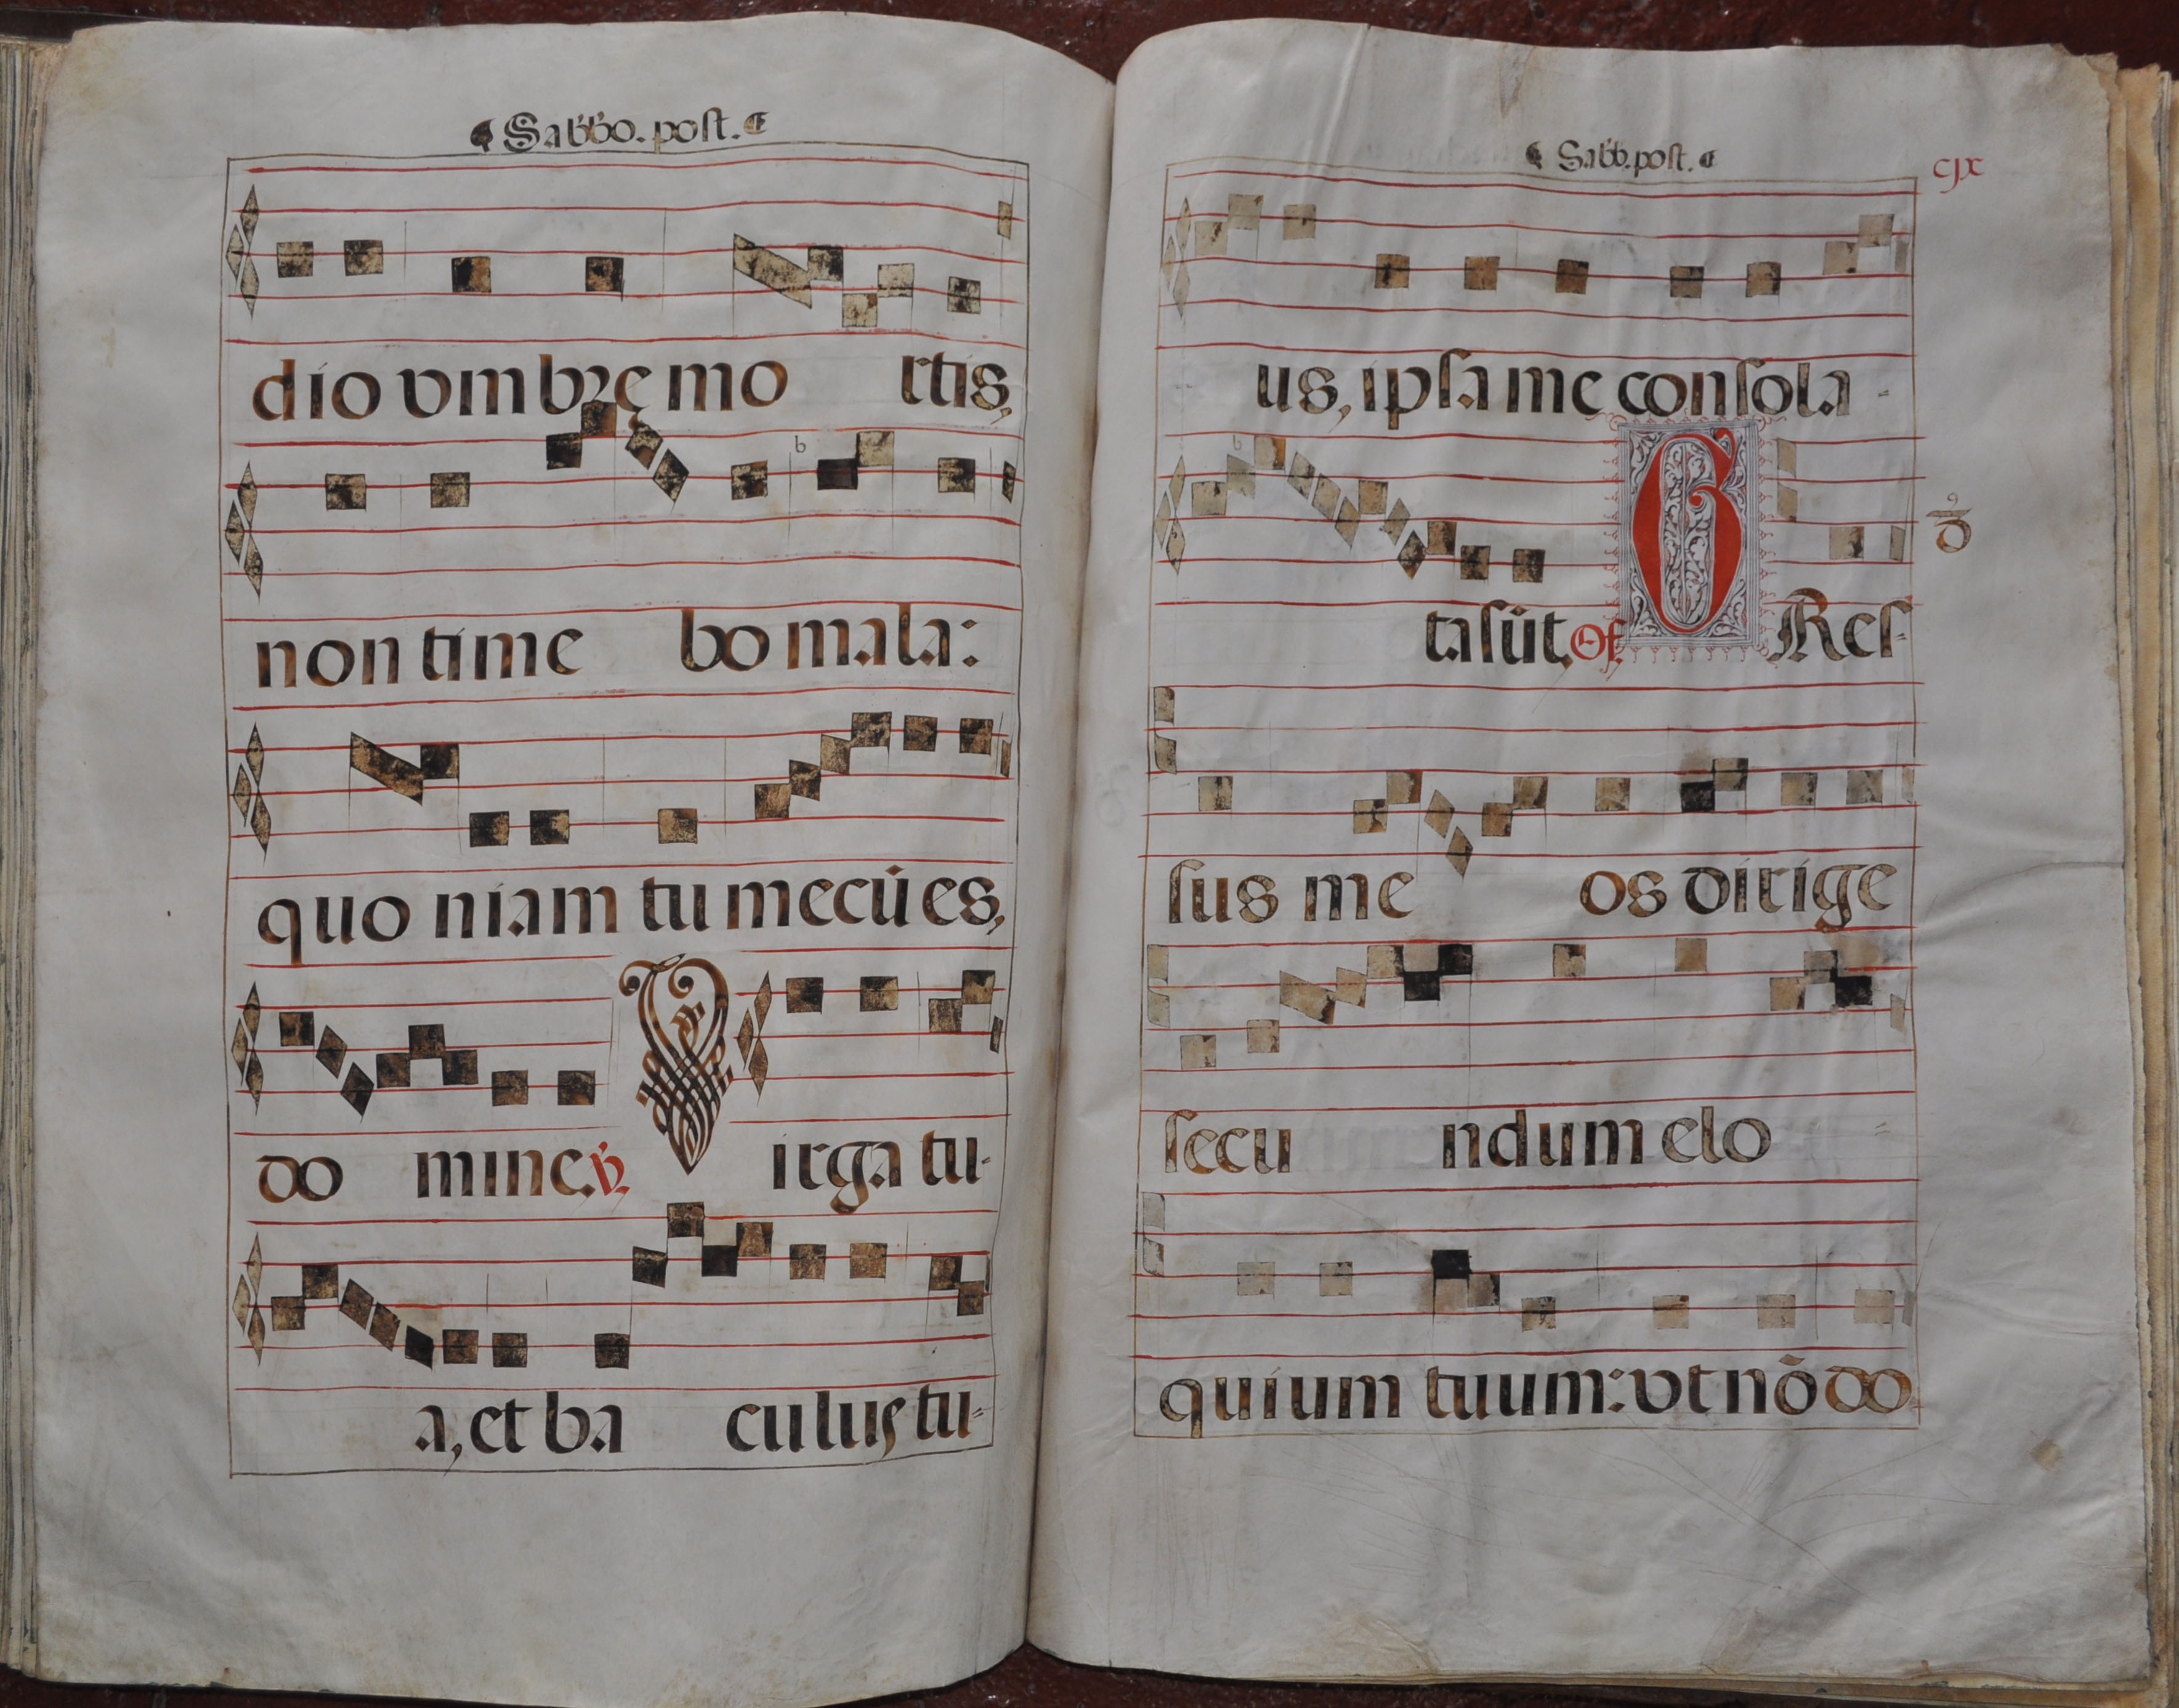 Sabbo. post.
dio vmbrę mo rtis,
non time bo mala:
quo niam tu mecū es,
do mine. ꝟ. Virga tu-
a, et ba culus tu-
Sabb. post.
cjx
us, ipsa me consola-
ta sūt. Of. GRes-
sus me os dirige
secu ndum elo-
quium tuum: vt nō do